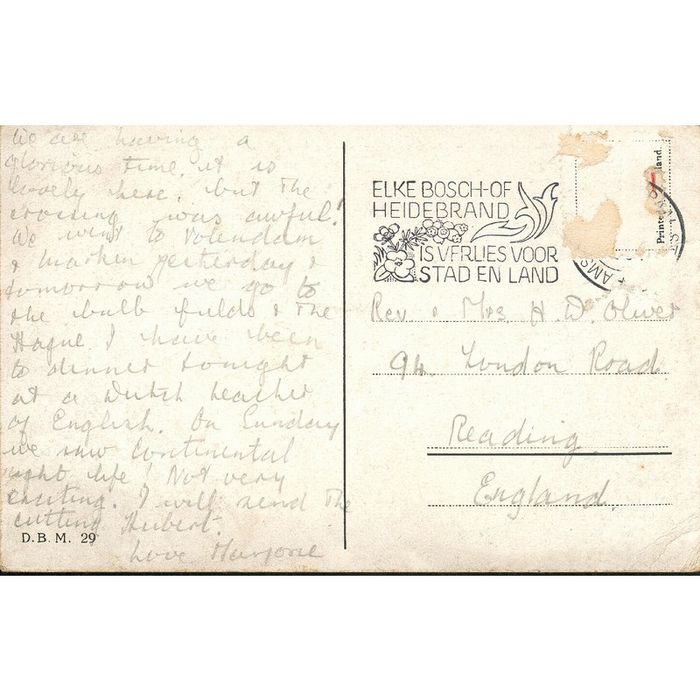 We are having a
glorious time, it is
lovely here, but the
crossing was awful!
We went to Volendam
& Marken yesterday &
tomorrow we go to
the bulb fields & the
Hague. I have been
to dinner tonight
at a Dutch teacher
of English. On Sunday
we saw continental
night life! Not very
exciting. I will send the
cutting Hubert.
Love Marjorie
D.B.M. 29
ELKE BOSCH-OF
HEIDEBRAND
IS VERLIES VOOR
STAD EN LAND
AMS
Rev. & Mrs. H. D. Oliver
94. London Road
Reading
England.